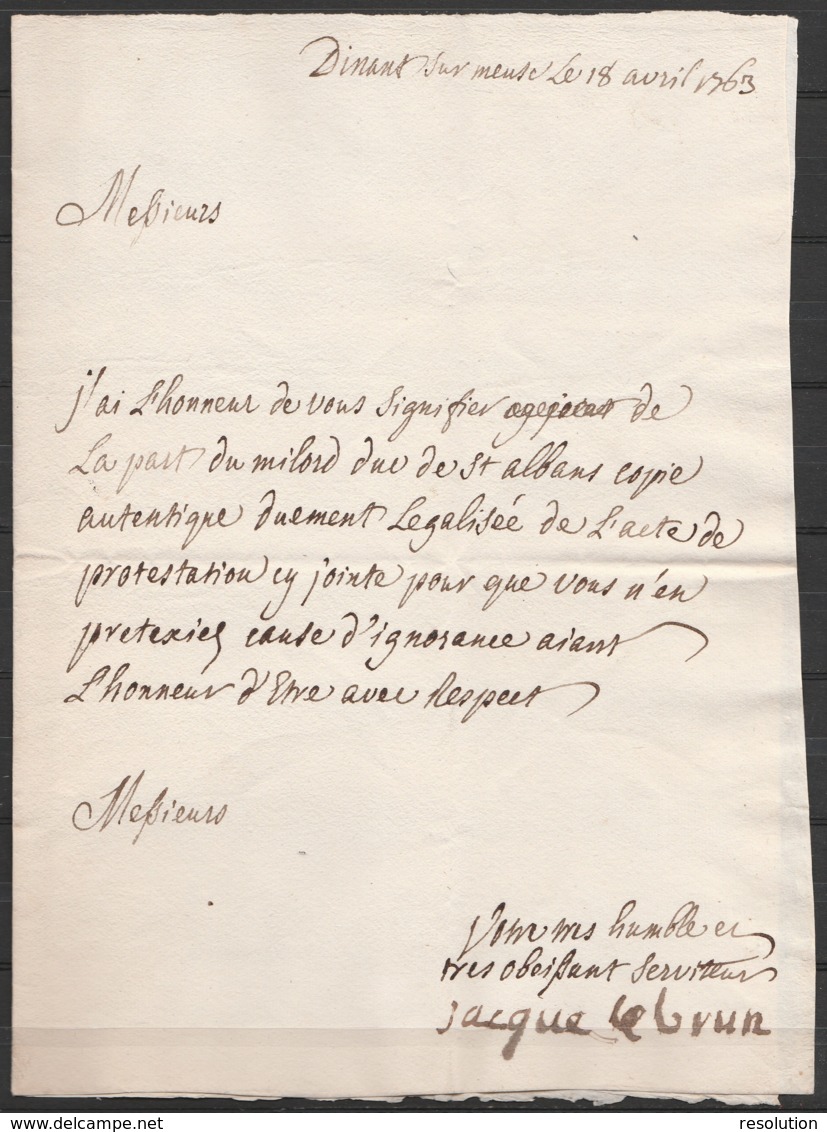 Dinant sur meuse Le 18 avril 1763
Meßieurs
j'ai L'honneur de vous signifier de
La part du milord duc de st albans copie
autentique duement Legalisée de L'acte de
protestation cy jointe pour que vous n'en
pretexiez cause d'ignorance aiant
L'honneur d'Etre avec Respect
Meßieurs
Votre tres humble et
tres obeißant serviteur
jacque le brun
www.delcampe.net
resolution